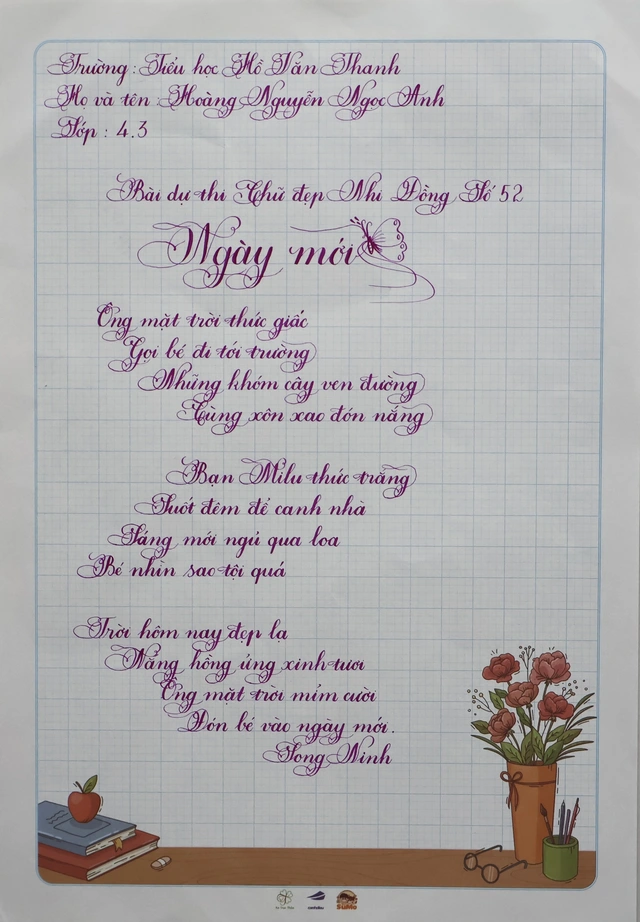 Trường: Tiểu học Hồ Văn Thanh
Họ và tên: Hoàng Nguyễn Ngọc Anh
Lớp: 4.3
Bài dự thi Chữ đẹp Nhi Đồng Số 52
Ngày mới
Ông mặt trời thức giấc
Gọi bé đi tới trường
Những khóm cây ven đường
Cùng xôn xao đón nắng
Bạn Milu thức trắng
Suốt đêm để canh nhà
Sáng mới ngủ qua loa
Bé nhìn sao tội quá
Trời hôm nay đẹp lạ
Nắng hồng ửng xinh tươi
Ông mặt trời mỉm cười
Đón bé vào ngày mới.
Song Ninh